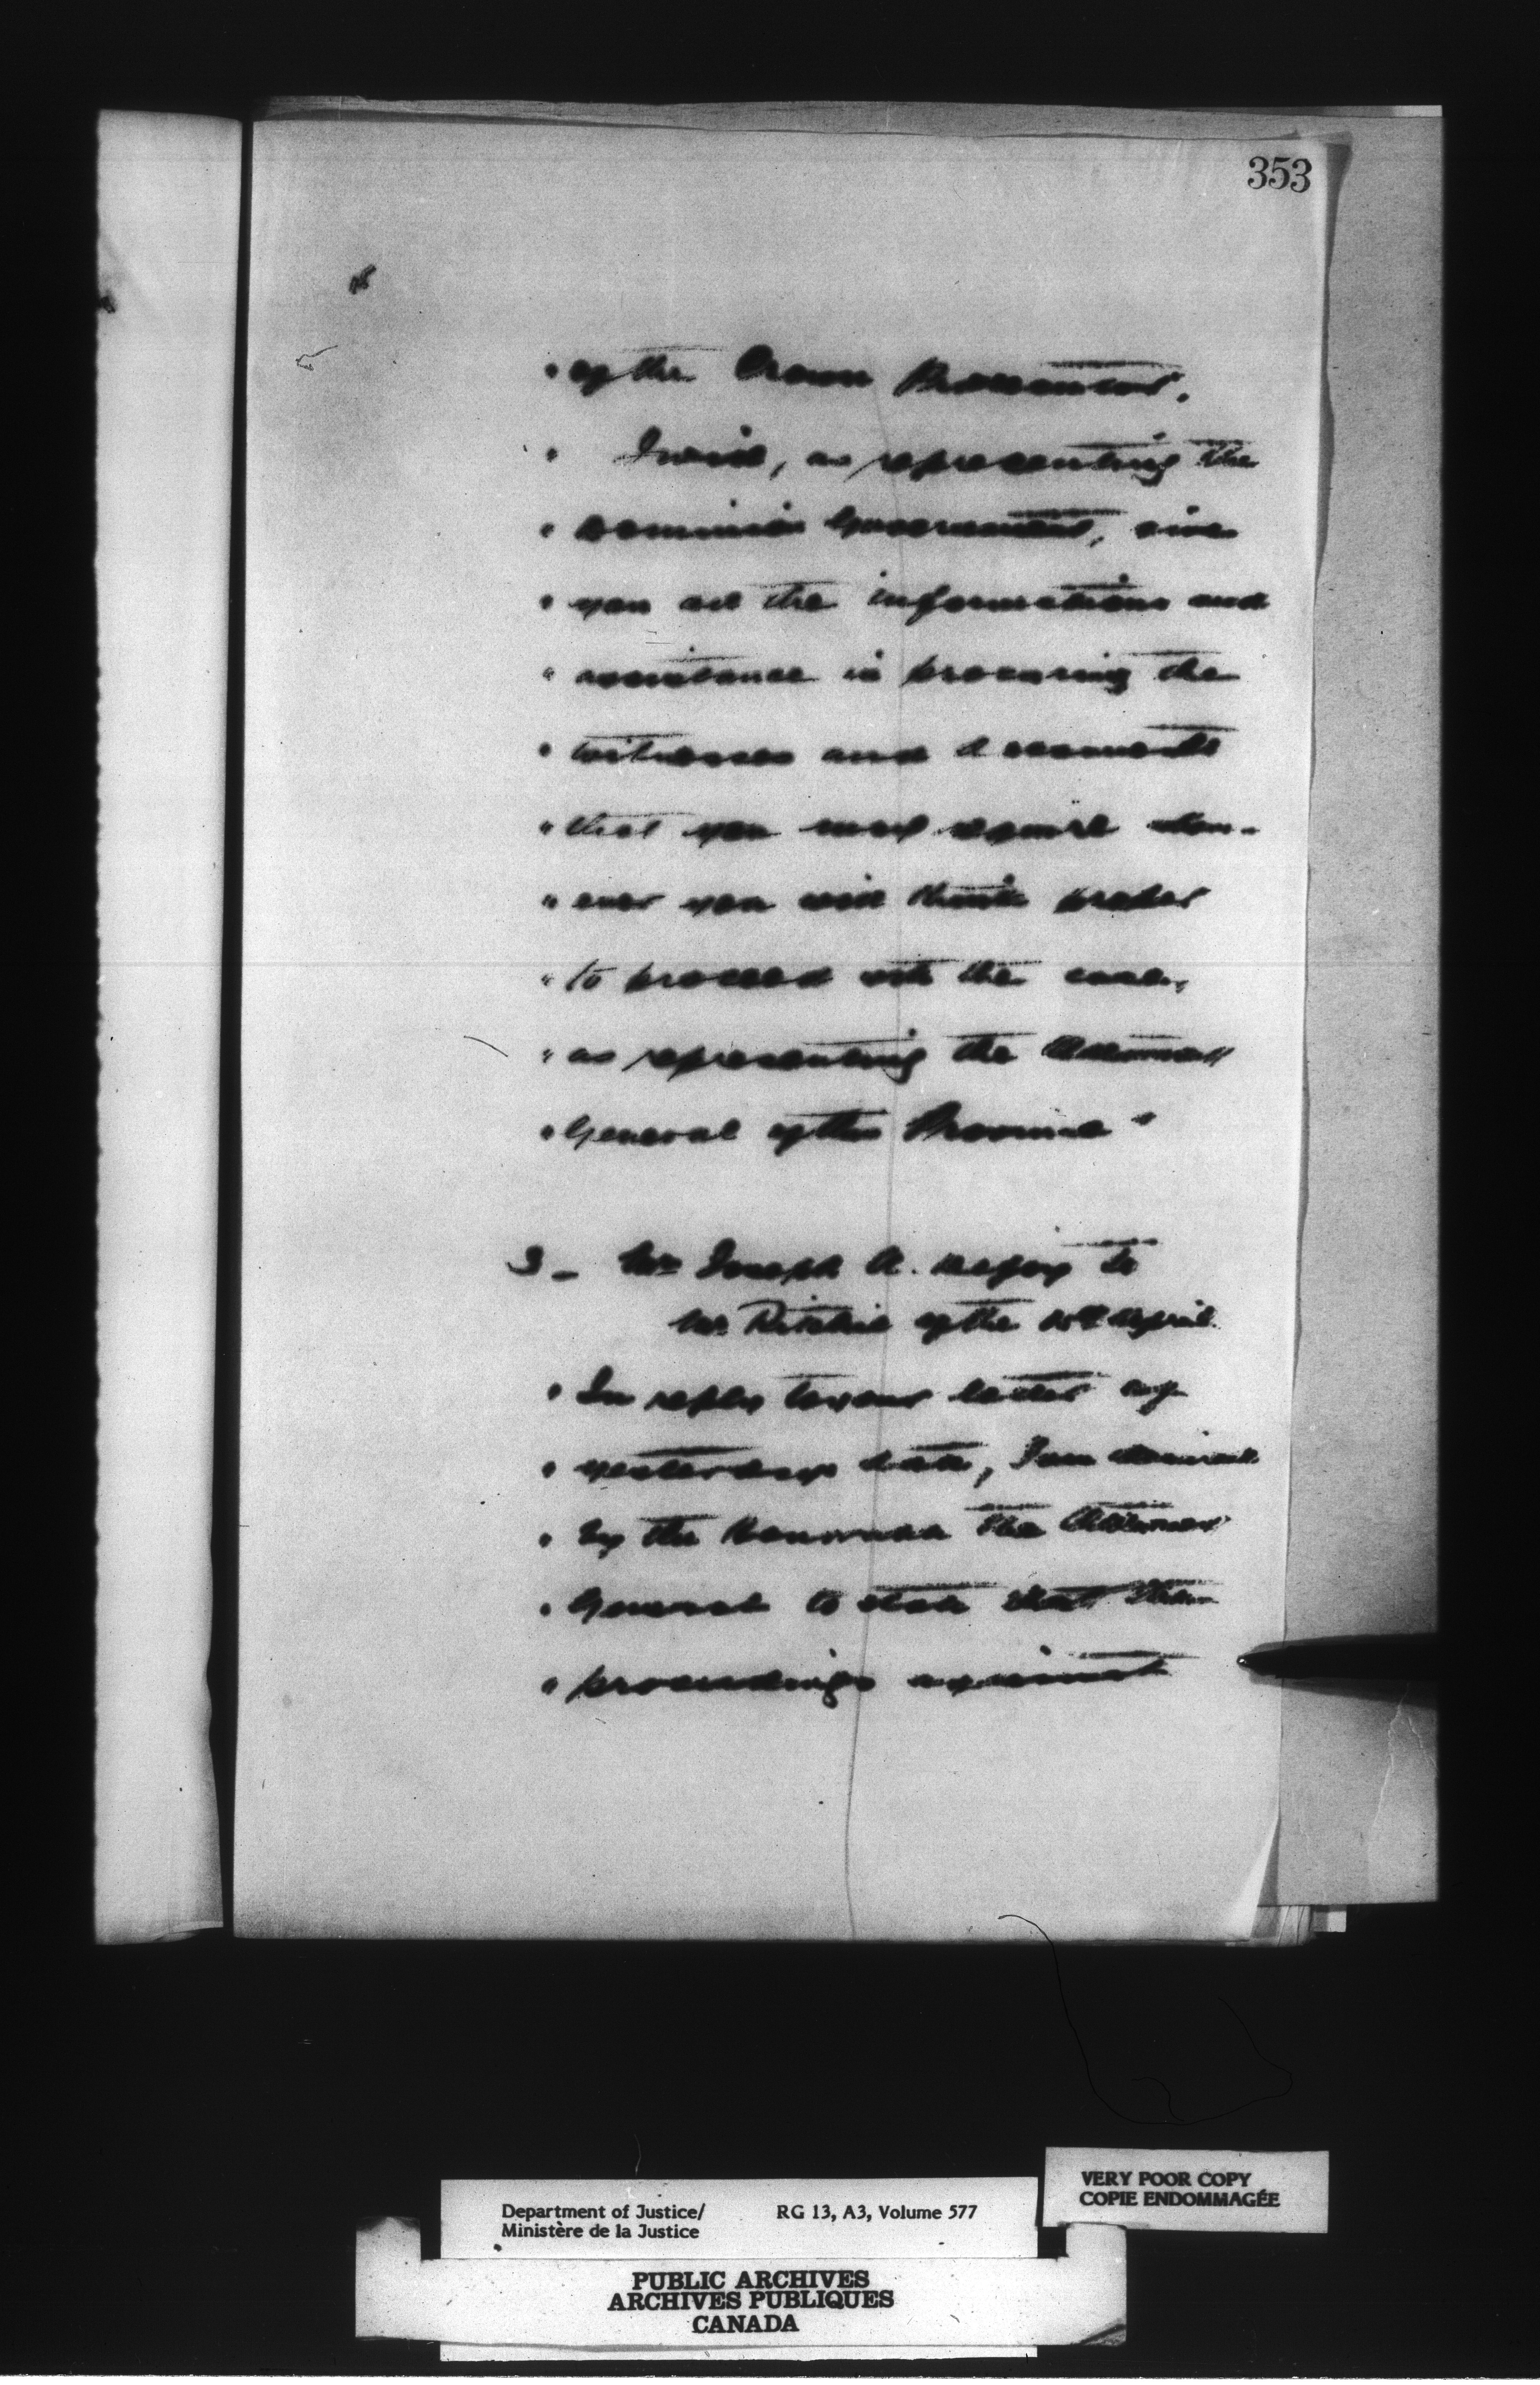 353
" of the Crown Prosecutor.
" I will, as representing the
" Dominion Government, give
" you all the informations and
" assistance in procuring the
" witnesses and documents
" that you may require when-
" ever you will think proper
" to proceed with the case,
" as representing the Attorney
" General of the Province "
3 - Mr Joseph A. to
Mr Ritchie of the April.
" In reply to your letter of
" yesterdays date, I am desired
" by the Honorable the Attorney
" General to state that the
" proceedings against
Department of Justice/ RG 13, A3, Volume 577
Ministère de la Justice
VERY POOR COPY
COPIE ENDOMMAGÉE
PUBLIC ARCHIVES
ARCHIVES PUBLIQUES
CANADA